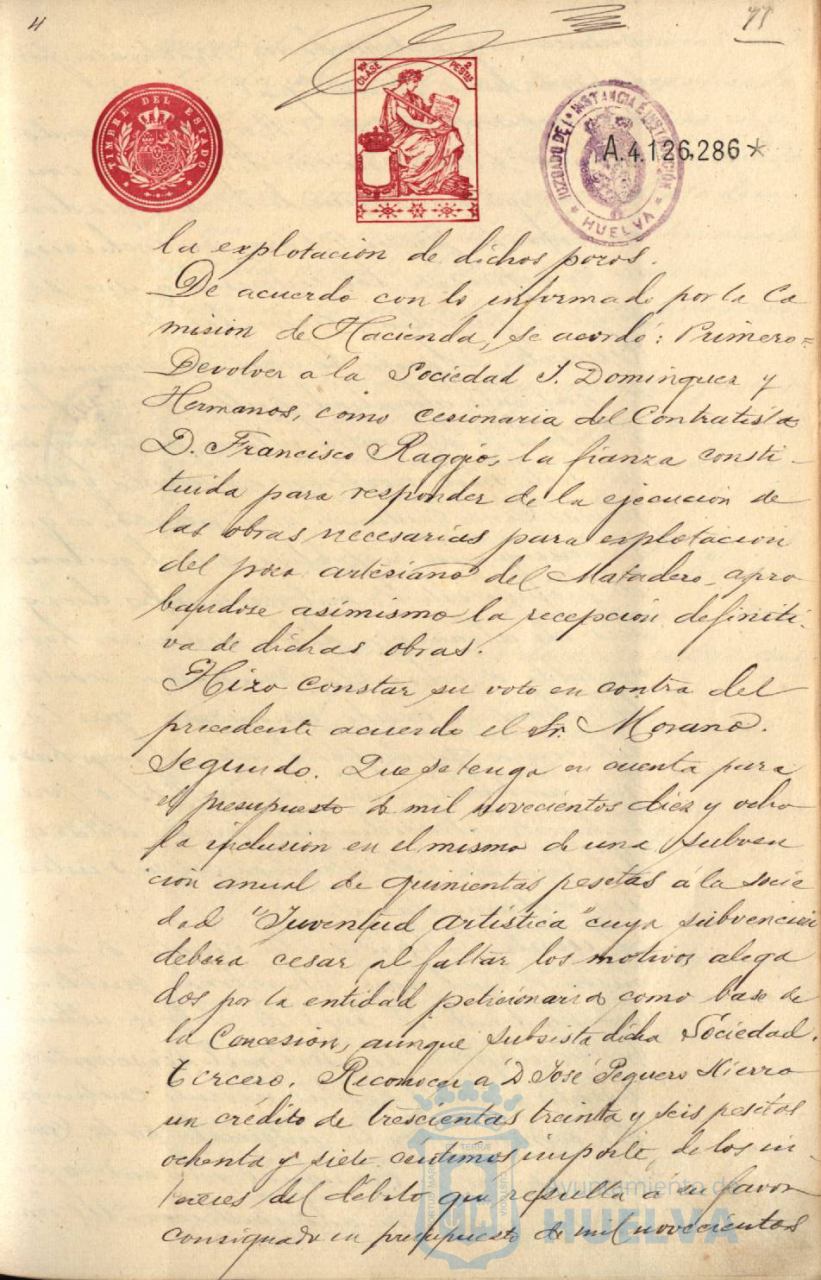 4
77
TIMBRE DEL ESTADO
10ª CLASE 2 PESTAS
JUZGADO DE 1ª INSTANCIA E INSTRUCCIÓN
* HUELVA *
A.4.126.286*
la explotacion de dichos pozos.
De acuerdo con lo informado por la Co
mision de Hacienda, se acordó: Primero=
Devolver á la Sociedad J. Dominguez y
Hermanos, como cesionaria del Contratista
D. Francisco Raggio, la fianza consti-
tuida para responder de la ejecucion de
las obras necesarias para explotacion
del pozo artesiano del Matadero, apro
bandose asimismo la recepción definiti-
va de dichas obras.
Hizo constar su voto en contra del
precedente acuerdo el Sr. Morano.
Segundo. Que se tenga en cuenta para
el presupuesto de mil novecientos diez y ocho
la inclusion en el mismo de una subven
cion anual de quinientas pesetas á la socie
dad "Juventud Artística" cuya subvencion
debera cesar al faltar los motivos alega
dos por la entidad peticionaria como base de
la Concesion, aunque subsista dicha Sociedad.
Tercero. Reconocer á D. José Peguero Hierro
un crédito de trescientas treinta y seis pesetas
ochenta y siete céntimos importe de los in-
tereses del débito que resulta á su favor
consignado en presupuesto de mil novecientos
Ayuntamiento de
HUELVA